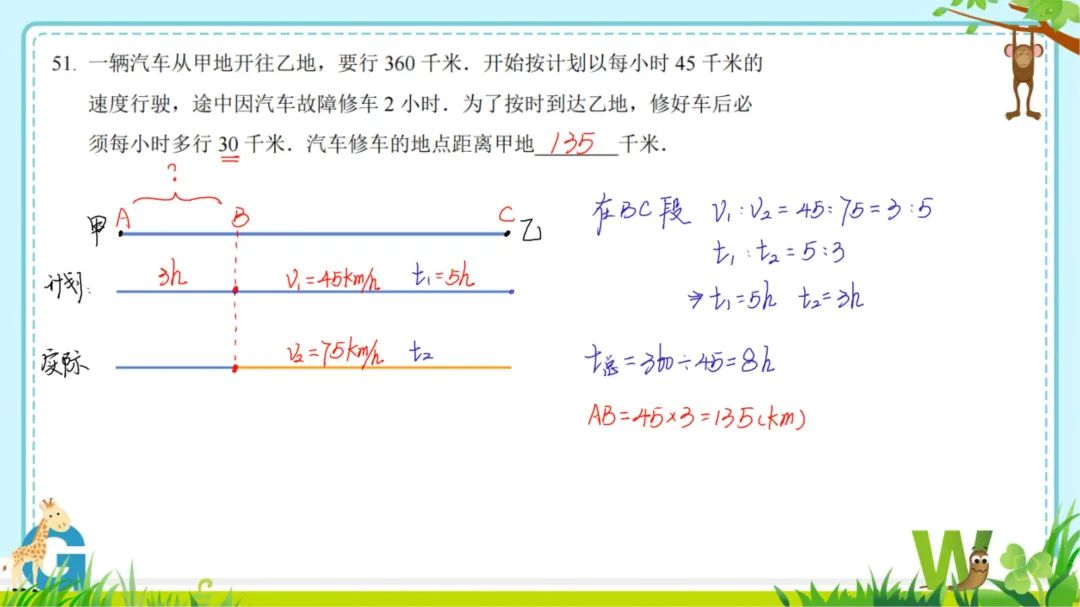 51. 一辆汽车从甲地开往乙地，要行 360 千米．开始按计划以每小时 45 千米的
速度行驶，途中因汽车故障修车 2 小时．为了按时到达乙地，修好车后必
须每小时多行 30 千米．汽车修车的地点距离甲地 135 千米．
?
甲 A B C 乙
计划: 3h V₁=45km/h t₁=5h
实际 V₂=75km/h t₂
在BC段 V₁:V₂=45:75=3:5
t₁:t₂=5:3
⇒t₁=5h t₂=3h
t总=360÷45=8h
AB=45×3=135(km)
G
W